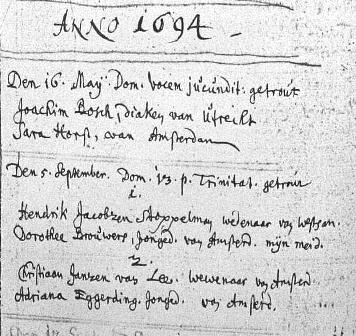 ANNO 1694 -
Den 16. May. Dom. vocem jucundit. getrout
Joachim Bosch, diaken van Utrecht
Sara Horst, van Amsterdam
Den 5. September. Dom. 13. p. Trinitat. getrout
1.
Hendrik Jacobzen Stoppelman wedenaar van
Dorothee Brouwers, Jonged. van Amsterd. mijn meid.
2.
Christiaan Janzen van Lee. wewenaar van Amsterd.
Adriana Eggerding. Jonged. van Amsterd.